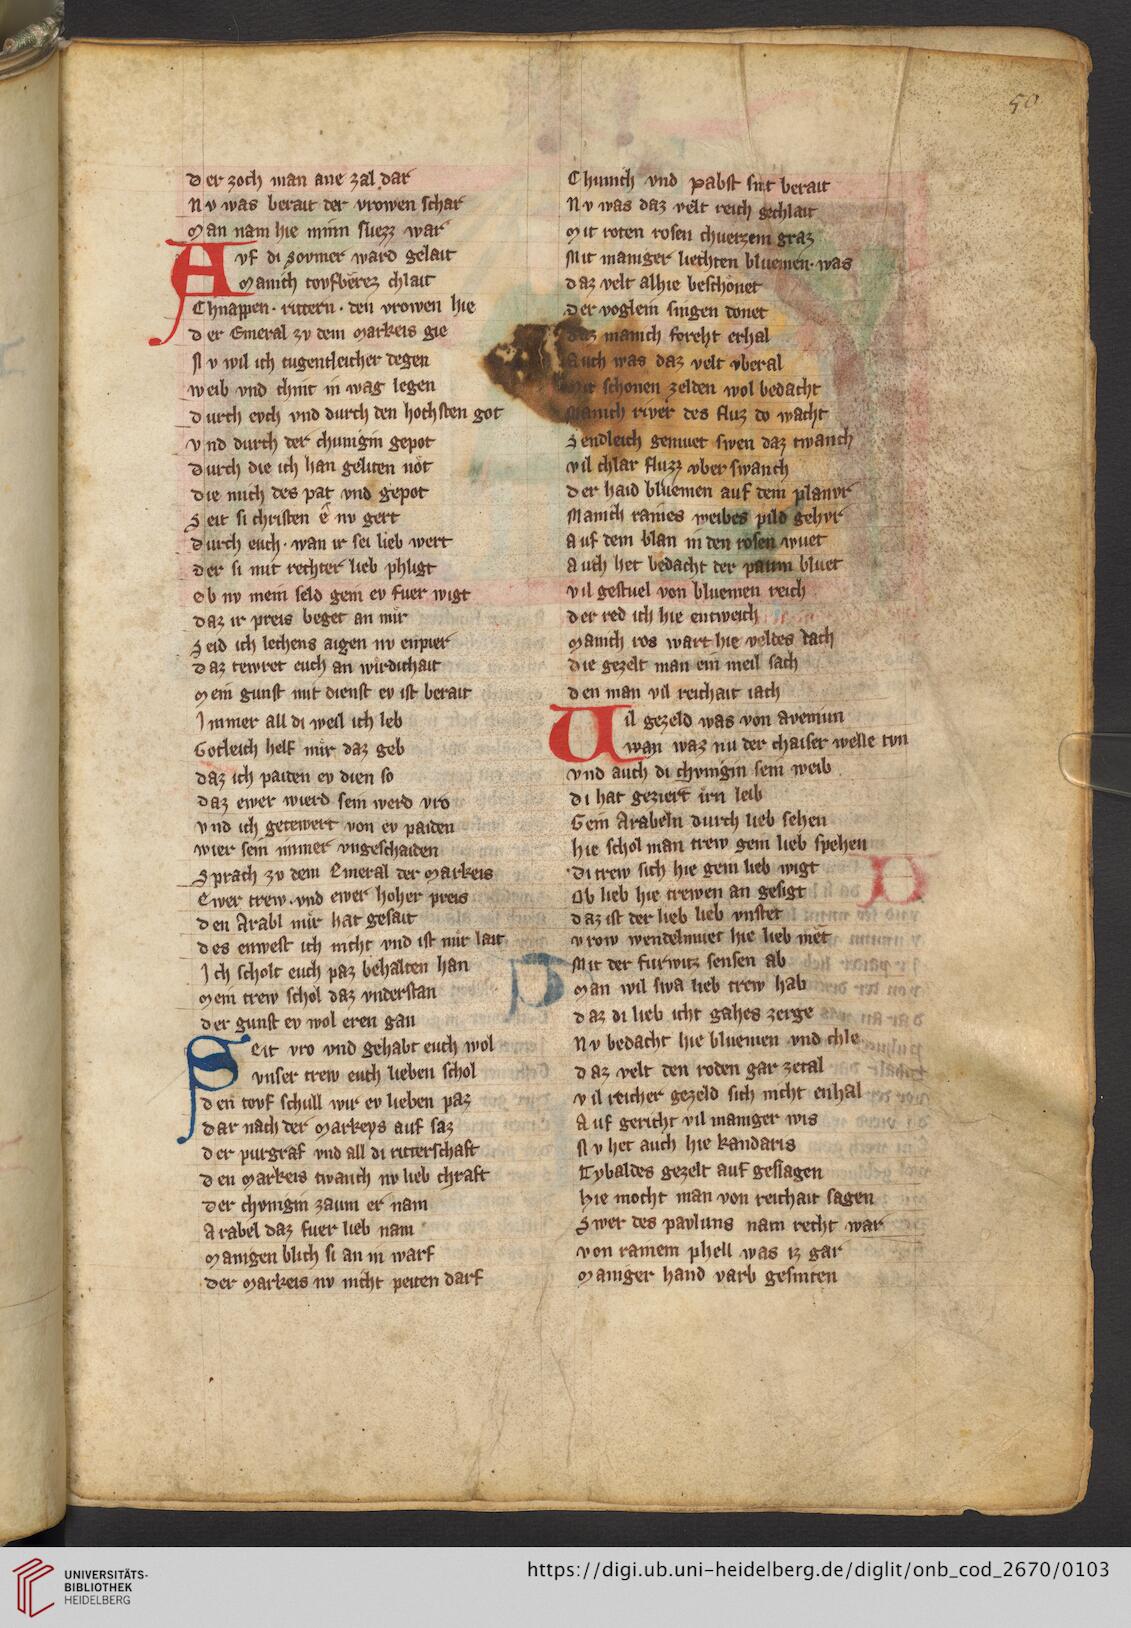 50
Der zoch man ane zal dar
Nv was berait der vrowen schar
Man nam hie minn suezz war
Avf di sovmer ward gelait
Manich tovfberez chlait
Chnappen · rittern · den vrowen hie
Der Emeral zv dem Markeis gie
Nv wil ich tugentleicher degen
Weib vnd chint in wag legen
Durch evch vnd durch den hochsten got
Vnd durch der chunigin gepot
Durch die ich han geliten not
Die mich des pat vnd gepot
Seit si christen e nv gert
Durch euch · wan ir sei lieb wert
Der si mit rechter lieb phligt
Ob nv mein seld gein ev fuer wigt
Daz ir preis beget an mir
Seid ich lechens aigen nv enpier
Daz tewret euch an wirdichait
Mein gunst mit dienst ev ist berait
Immer all di weil ich leb
Gotleich helf mir daz geb
Daz ich paiten ev dien so
Daz ewer wierd sein werd vro
Vnd ich getewert von ev paiden
Wier sein immer vngeschaiden
Sprach zv dem Emeral der Markeis
Ewer trew · vnd ewer hoher preis
Den Arabl mir hat gesait
Des enwest ich nicht vnd ist mir lait
Ich scholt euch paz behalten han
Mein trew schol daz vnderstan
Der gunst ev wol eren gan
Seit vro vnd gehabt euch wol
Vnser trew euch lieben schol
Den tovf schull wir ev lieben paz
Dar nach der Markeys auf saz
Der purgraf vnd all di ritterschaft
Den Markeis twanch nv lieb chraft
Der chvnigin zaum er nam
Arabel daz fuer lieb nam
Manigen blich si an in warf
Der Markeis nv nicht peiten darf
Chunich vnd pabst sint berait
Nv was daz velt reich gechlait
Mit roten rosen chuerzem graz
Mit maniger liechten bluemen · was
Daz velt alhie beschonet
Der voglein singen donet
Daz manich foreht erhal
Auch was daz velt vberal
Mit schonen zelden wol bedacht
Manich river des fluz do wacht
Sendleich gemuet swen daz twanch
Vil chlar fluzz vber swanch
Der haid bluemen auf dem planvr
Manich raines weibes pild gehvr
Auf dem blan in den rosen wuet
Auch het bedacht der paum bluet
Vil gestuel von bluemen reich
Der red ich hie entweich
Manich ros wart hie veldes dach
Die gezelt man ein meil sach
Den man vil reichait iach
Vil gezeld was von avemun
Wan waz nu der chaiser welle tvn
Vnd auch di chvnigin sein weib
Di hat geziert irn leib
Gein Arabeln durch lieb sehen
Hie schol man trew gein lieb spehen
Di trew sich hie gein lieb wigt
Ob lieb hie trewen an gesigt
Daz ist der lieb lieb vnstet
Vrow wendelmuet hie lieb met
Mit der furwitz sensen ab
Man wil swa lieb trew hab
Daz di lieb icht gahes zerge
Nv bedacht hie bluemen vnd chle
Daz velt den roden gar zetal
Vil reicher gezeld sich nicht enhal
Auf gericht vil maniger wis
Nv het auch hie kandaris
Tybaldes gezelt auf geslagen
Hie mocht man von reichait sagen
Swer des pavluns nam recht war
Von ramem phell was iz gar
Maniger hand varb gesniten
UNIVERSITÄTS-
BIBLIOTHEK
HEIDELBERG
https://digi.ub.uni-heidelberg.de/diglit/onb_cod_2670/0103